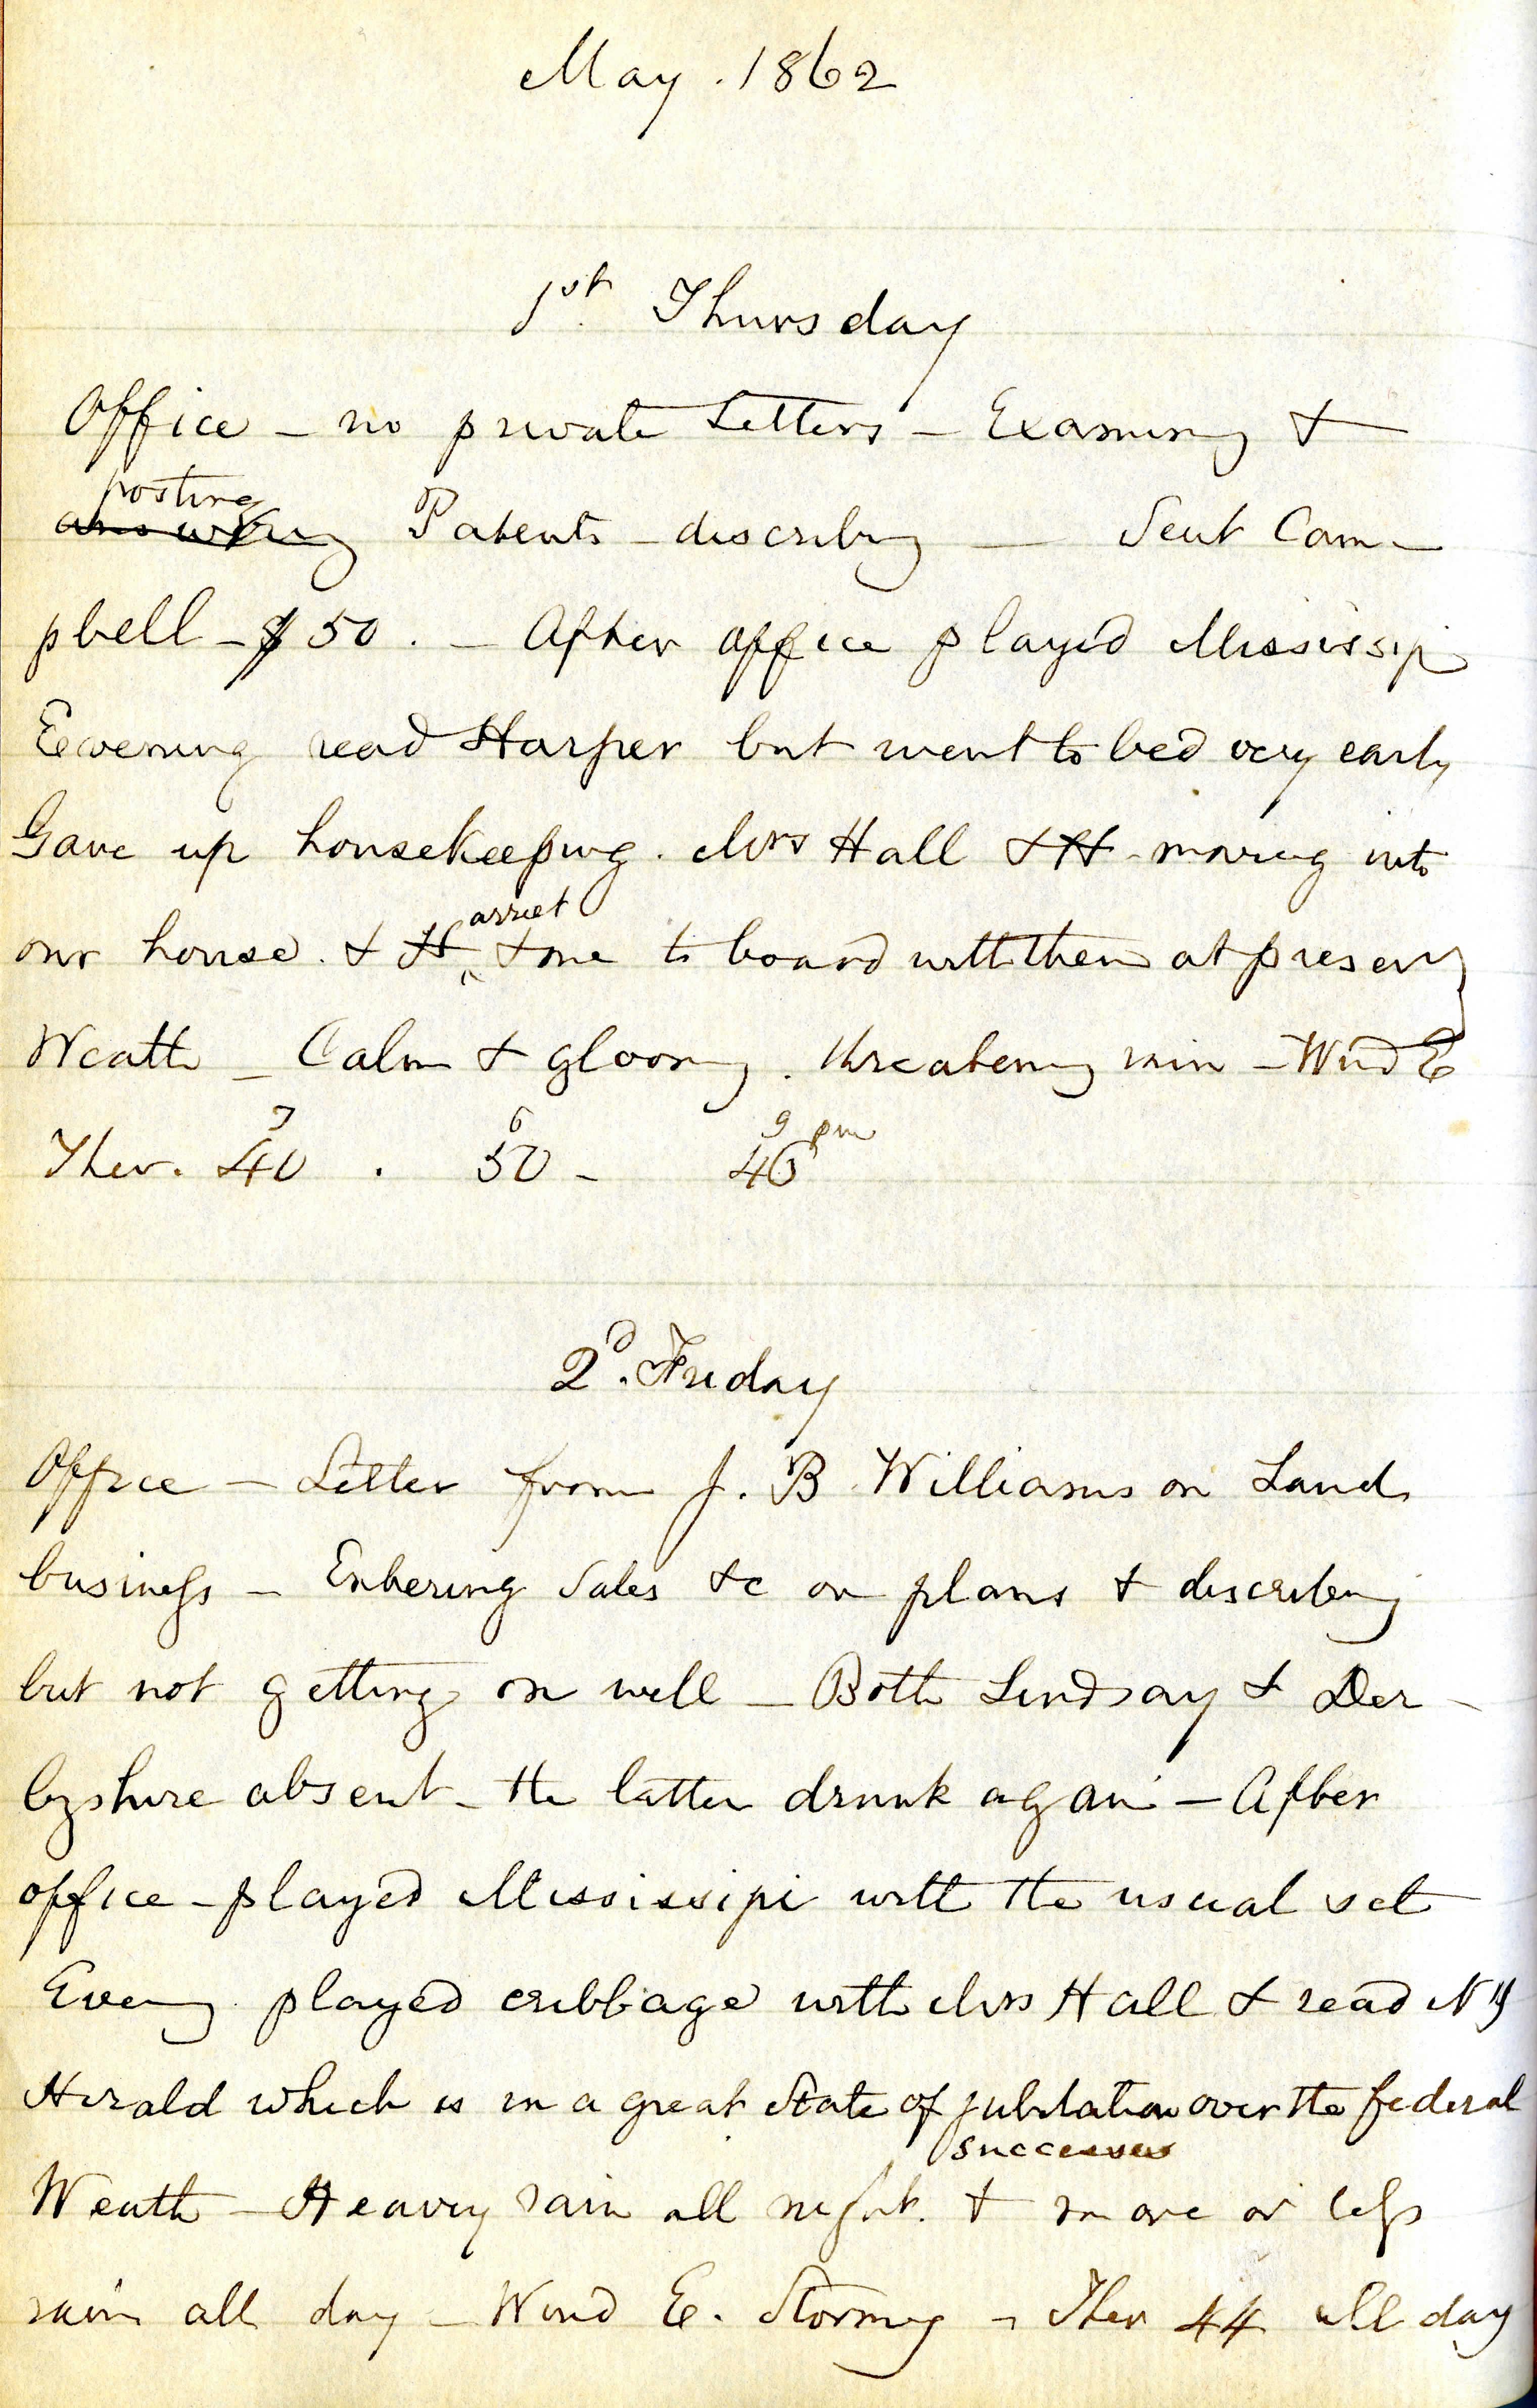 May . 1862
1st. Thursday
Office - no private Letters - Examining &
posting
answering Patents - discribing - Sent Cam-
pbell - $50. - After office played Mississipi
Eevening read Harper but went to bed very early
Gave up housekeeping. Mrs Hall & H - moving into
arriet
our house. & H & me to board with them at present
Weath - Calm & gloomy. threatening rain - Wind E
7 6 9 pm
Ther. 40 . 50 -
2d. Friday
Office - Letter from J. B Williams on Land
business - Entering Sales &c on plans & discribing
but not getting on well - Both Lindsay & Der -
byshire absent - the latter drunk again - After
office - played Mississipi with the usual set
Eveng played cribbage with Mrs Hall & read N Y
Herald which is in a great State of jubilation over the federal
successes
Weath - Heavy rain all night. & more or less
rain all day - Wind E. Stormy - Ther 44 all day